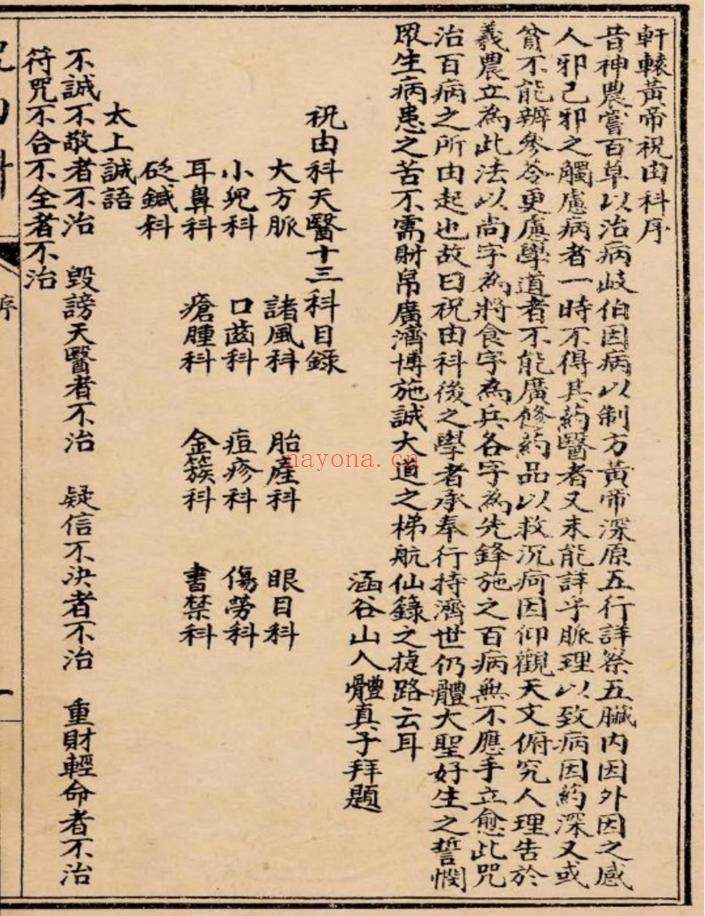 軒轅黃帝祝由科序
昔神農嘗百草以治病岐伯因病以制方黃帝深原五行詳察五臟內因外因之感
人邪己邪之觸慮病者一時不得其藥醫者又未能詳乎脈理以致病因藥深又或
貧不能辦參苓更慮學道者不能廣修藥品以救沉疴因仰觀天文俯究人理告於
義農立為此法以尚字為將食字為兵各字為先鋒施之百病無不應手立愈此咒
治百病之所由起也故曰祝由科後之學者承奉行持濟世仍體大聖好生之誓憫
眾生病患之苦不需財帛廣濟博施誠大道之梯航仙籙之捷路云耳
涵谷山人體真子拜題
祝由科天醫十三科目錄
大方脈 諸風科 胎產科 眼目科
小兒科 口齒科 痘疹科 傷勞科
耳鼻科 瘡腫科 金簇科 書禁科
砭鍼科
太上誡語
不誠不敬者不治 毀謗天醫者不治 疑信不決者不治 重財輕命者不治
符咒不合不全者不治
序
一
nayona.cn